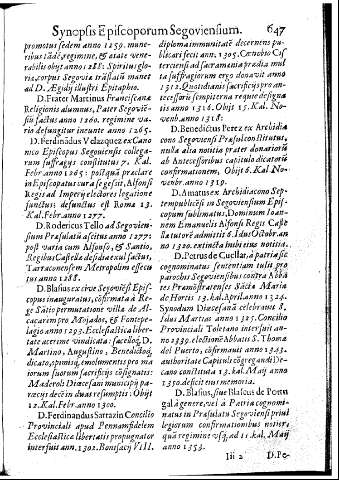 Synopsis Episcoporum Segoviensium. 647
promotus sedem anno 1259. mune-
ribus laudē, regimine, & ætate vene-
rabilis obijt anno 1288: Spiritus glo-
ria, corpus Segoviæ trāslatū manet
ad D. Ægidij illustri Epitaphio.
D. Frater Martinus Franciscanæ
Religionis alumnus, Pater Segovie-
sis factus anno 1260. regimine va-
rio defungitur ineunte anno 1265.
D. Ferdinādus Velazquez ex Cano
nico Episcopus Segoviensis collega-
rum suffragys constitutus 7. Kal.
Febr anno 1265: postquā præclare
in Episcopatu cura se gessit, Alfonsi
Regis ad Imperij electores legatione
functus; defunctus est Romæ 13.
Kal. Febr anno 1277.
D. Rodericus Tello ad Segovien-
sium Præsulatū ascitus anno 1277:
post varia cum Alfonso, & Santio,
Regibus Castellæ desidia exul factus,
Tarraconensem Metropolim effecu
tus anno 1288.
D. Blasius ex cive Segoviēsi Epis-
copus inauguratus, confirmata à Re-
ge Sātio permutatione villæ de Al-
cacarem pro Mojados, & Fontepe-
lagio anno 1293. Ecclesiastica liber-
tate acerime vindicata: sacellos, D.
Martino, Augustino, Benedictoq,
dicatis, opimisq, emolumentis pro ma
iorum suorum sacrificijs cōsignatis:
Maderoli Diœcesani municipij pa-
ræcijs decē in duas resumptis: Obijt
12. Kal. Febr anno 1300.
D. Ferdinandus Sarrazin Concilio
Provinciali apud Pennamfidelem
Ecclesiasticæ libertatis propugnator
interfuit ann. 1302. Bonifacij VIII.
diploma immunitatē decernens pu-
blicari fecit ann. 1305. Cænobio Cis-
terciensi ad Sacramenia prædia mul
ta suffragiorum ergo donavit anno
1312. Quotidianis sacrificijs pro an-
tecessoris sempiterna requie designa
tis anno 1316. Obijt 15. Kal. No-
venbr. anno 1318:
D. Benedictus Perez ex Archidia
cono Segoviensi Præsul constitutus,
nulla alia notitia præter donariorū
ab Antecessoribus capitulo dicatorū
confirmationem, Obijt 6. Kal. No-
venbr. anno 1319.
D. Amatus ex Archidiacono Sep-
tempublicēsi in Segoviensium Epis-
copum sublimatus, Dominum Ioan-
nem Emanuelis Alfonsi Regis Caste
lla tutorē admittit 6. Idus Octobr. an
no 1320. extincta imbi eius notitia.
D. Petrus de Cuellar, à patria sic
cognominatus sententiam tulit pro
parœcijs Segoviensibus contra Abbā
tes Præmonstratenses Sāctæ Mariæ
de Hortis 13. kal. April. anno 1324.
Synodum Diœcesanā celebravit 8.
Idus Martias anno 1325. Concilio
Provinciali Toletano interfuit an-
no 2339. electionē Abbatis S. Thomæ
del Puerto, cōfirmavit anno 1343.
authoritate Capitulo cōgregādi De-
cano constituta 13. kal. Maij anno
1350. deficit eius memoria.
D. Blasius, sive Blascus de Portu
gal à genere, vel à Patria cognomi-
natus in Præsulatu Segoviensi privi
legiorum confirmationibus notior,
quā regimine usq, ad 11. kal. Maij
anno 1353.
Iii 2 D. Pe-